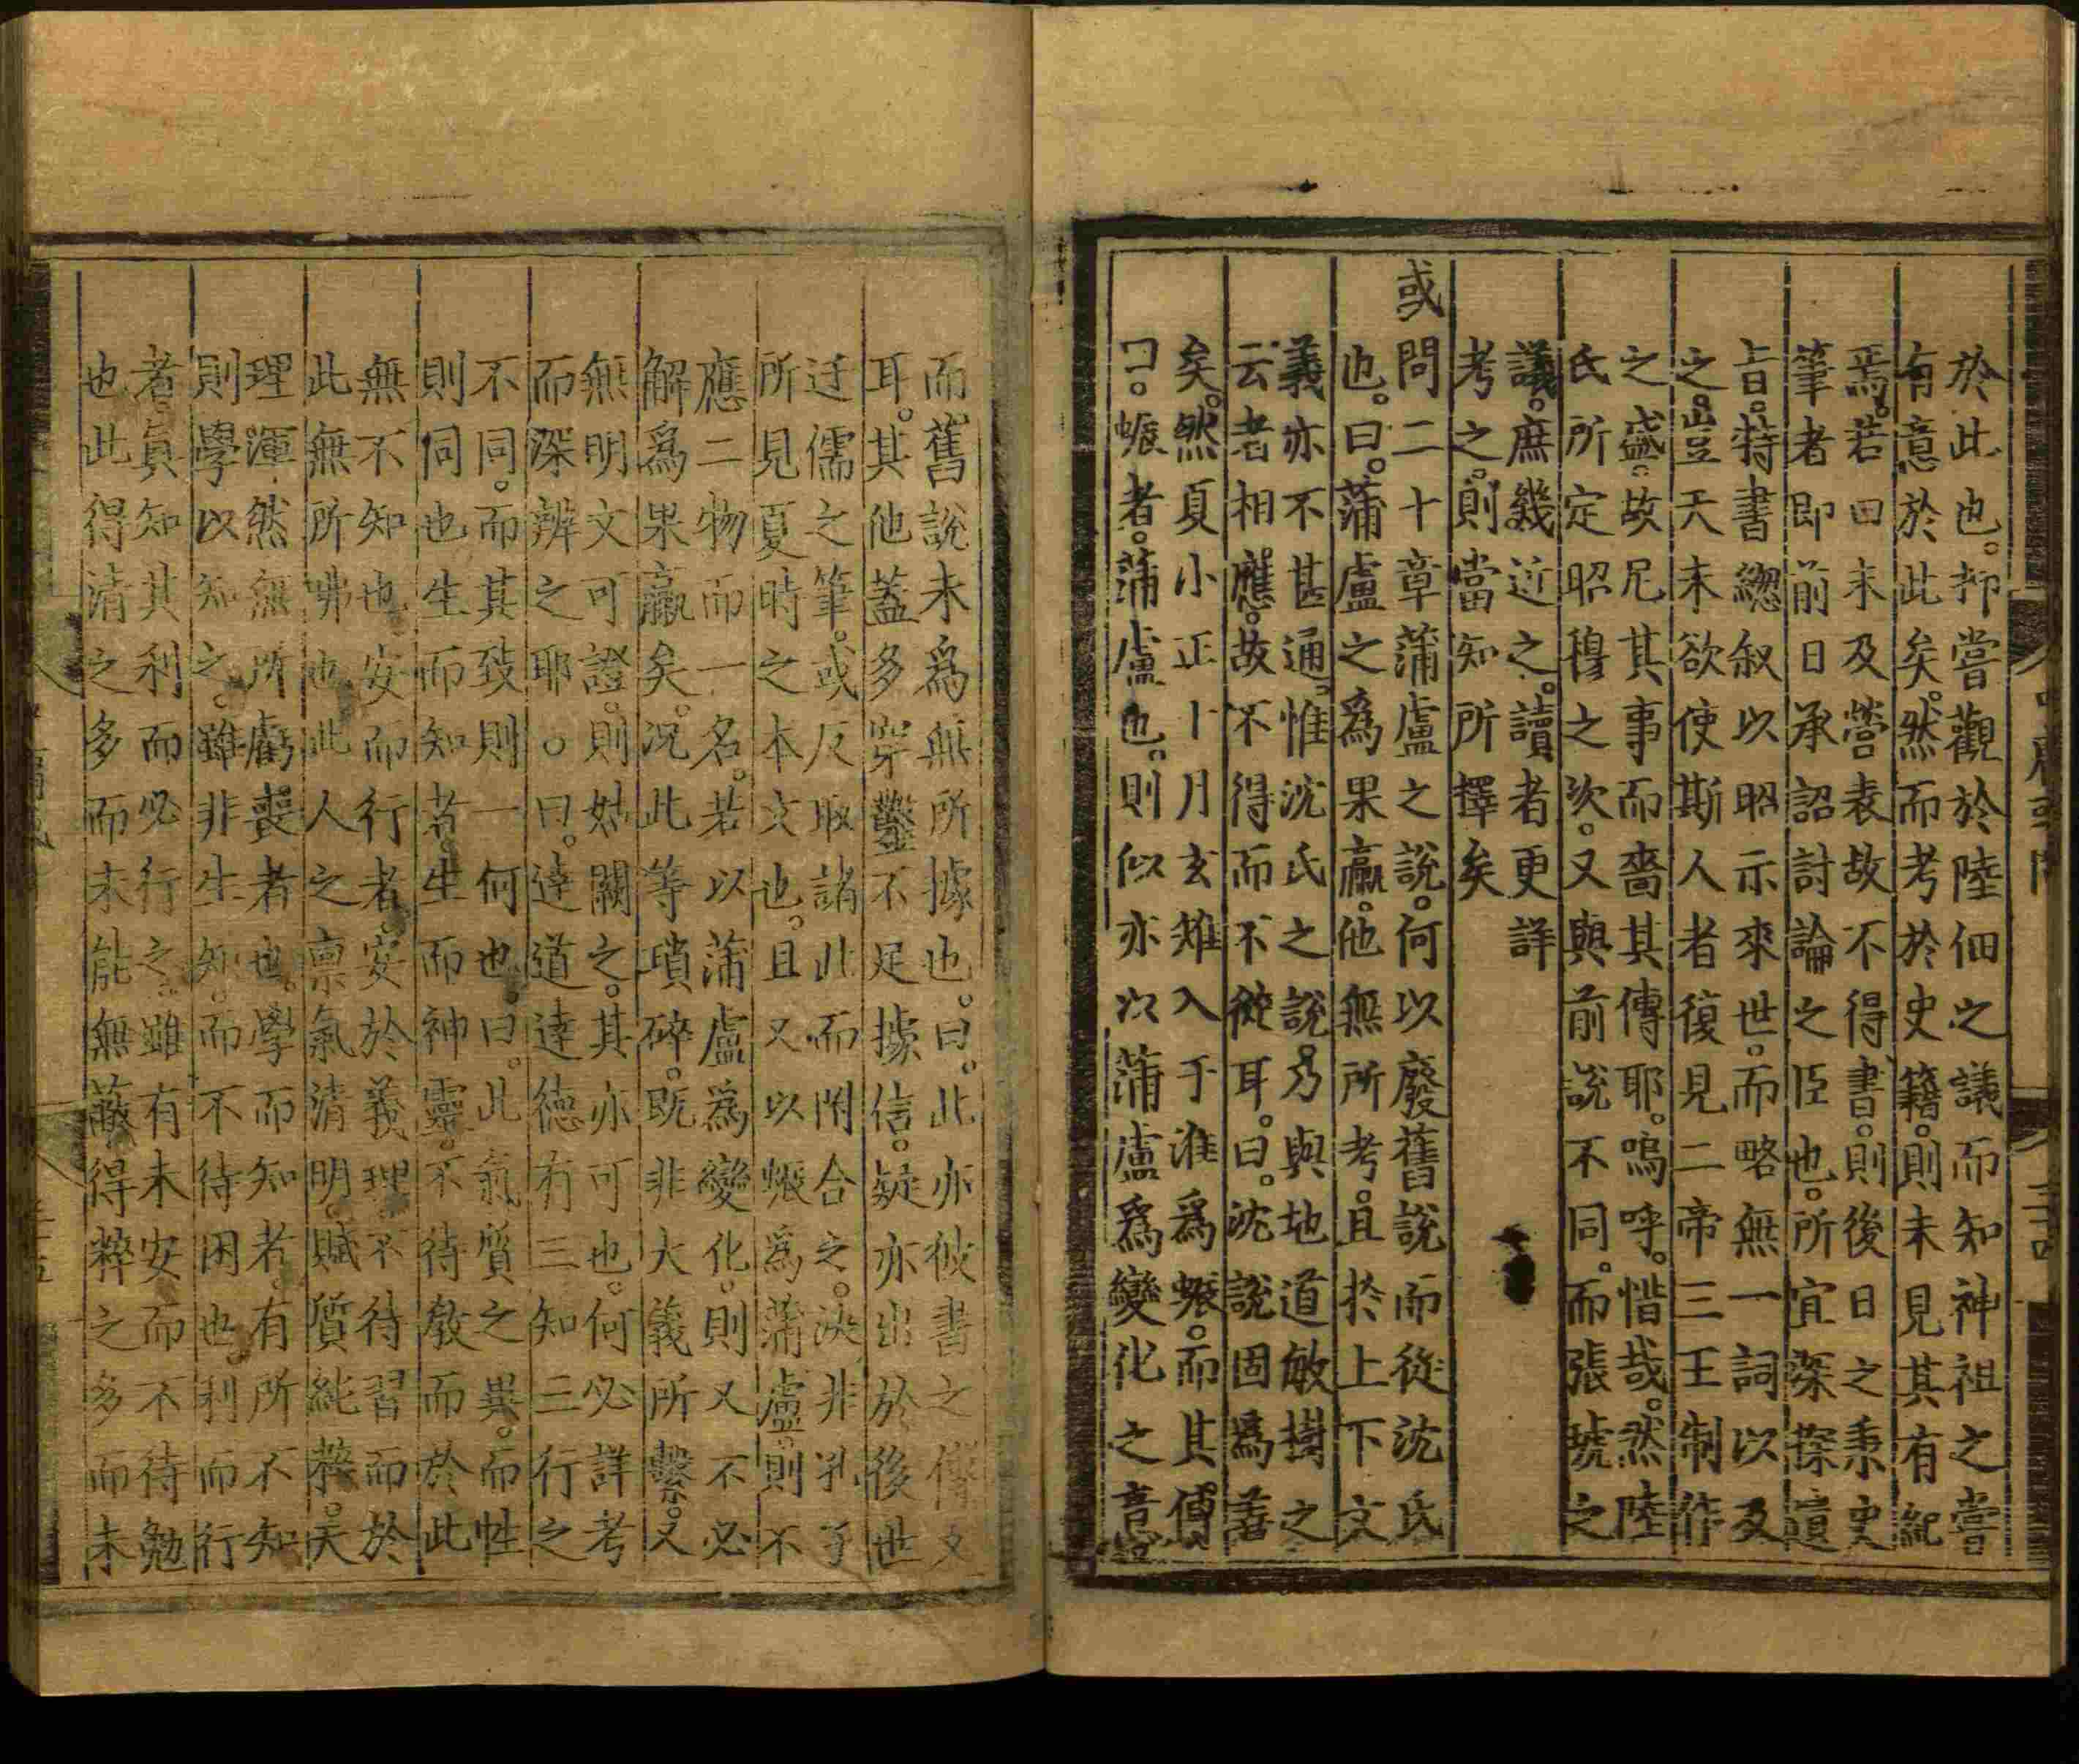 於此也。抑嘗觀於陸佃之議而知神祖之嘗
有意於此矣。然而考於史籍。則未見其有紀
焉。若曰未及營表。故不得書。則後日之秉史
筆者。即前日承詔討論之臣也。所宜深探遺
旨。特書總叙以昭示來世。而略無一詞以及
之。豈天未欲使斯人者復見二帝三王制作
之盛。故尼其事而嗇其傳耶。嗚呼。惜哉。然陸
氏所定昭穆之次。又與前說不同。而張琥之
議。庶幾近之。讀者更詳
考之。則當知所擇矣
或問二十章蒲盧之說。何以廢舊說而從沈氏
也。曰。蒲盧之爲果蠃。他無所考。且於上下文
義亦不甚通。惟沈氏之說。乃與地道敏樹之
云者相應。故不得而不從耳。曰。沈說固爲善
矣。然夏小正十月玄雉入于淮爲蜄。而其傳
曰。蜄者。蒲盧也。則似亦以蒲盧爲變化之意
而舊說未爲無所據也。曰。此亦彼書之傳文
耳。其他蓋多穿鑿不足據信。疑亦出於後世
迂儒之筆。或反取諸此而附合之。決非孔子
所見夏時之本文也。且又以蜄爲蒲盧。則不
應二物而一名。若以蒲盧爲變化。則又不必
解爲果蠃矣。況此等瑣碎。既非大義所繫。又
無明文可證。則姑闕之。其亦可也。何必詳考
而深辨之耶。○曰。達道達德有三知三行之
不同。而其致則一。何也。曰。此氣質之異。而性
則同也。生而知者。生而神靈。不待教而於此
無不知也。安而行者。安於義理。不待習而於
此無所咈也。此人之禀氣清明。賦質純粹。天
理渾然。無所虧喪者也。學而知者。有所不知
則學以知之。雖非生知。而不待困也。利而行
者。眞知其利而必行之。雖有未安而不待勉
也此得清之多而未能無蔽得粹之多而未